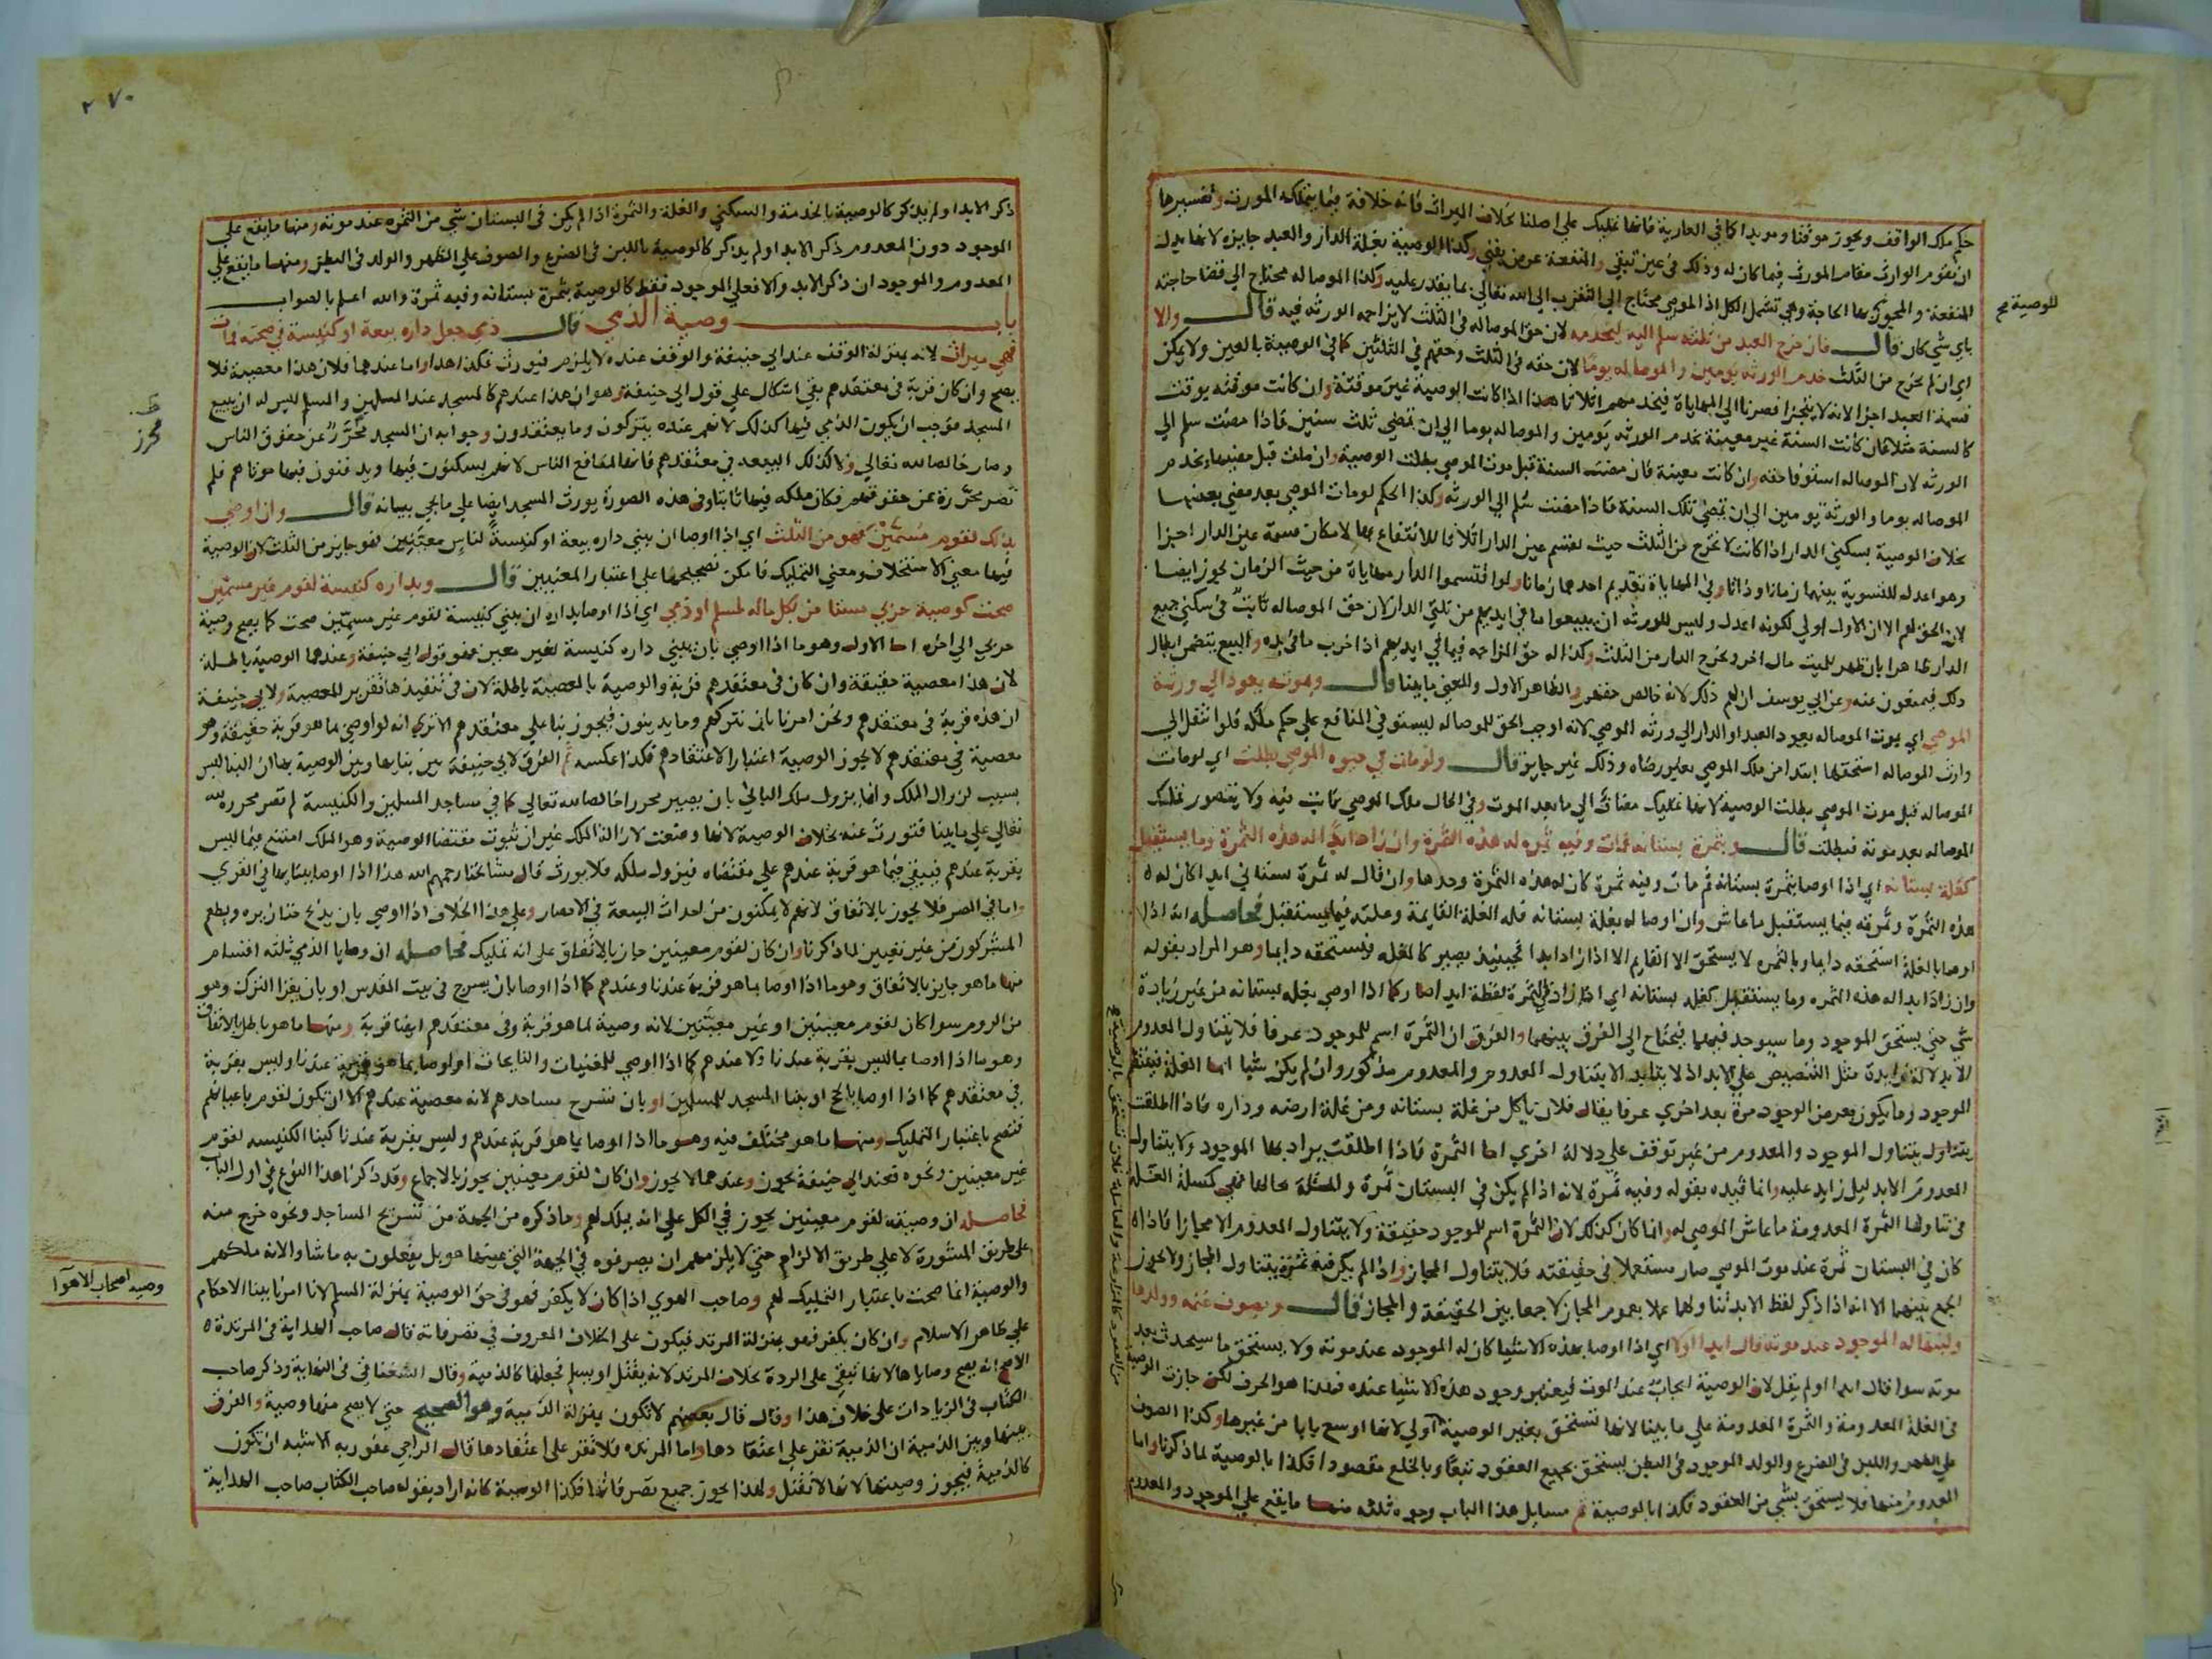 حكم ملك الواقف ويجوز موقتا وموبدا كما في العارية فانها تمليك على اصلنا بخلاف الميراث فانه خلافة فيما يتملكه المورث وتفسيرها
ان يقوم الوارث مقام المورث فيما كان له وذلك في عين تبقى والمنفعة عرض يفنى وكذا الوصية بغلة الدار والعبد جايزه لانها بدل
المنفعة والمجوز يعمها الحاجة وهي تشمل الكل اذ الموصي محتاج الى التقرب الى الله تعالى بما يقدر عليه وكذا الموصا له محتاج الى قضا حاجته
باي شي كان قال فان خرج العبد من ثلثه سلم اليه ليخدمه لان حق الموصا له في الثلث لا يزاحمه الورثه فيه قال والا
اي ان لم يخرج من الثلث خدم الورثه يومين والموصا له يوما لان حقه في الثلث وحقهم في الثلثين كما في الوصية بالعين ولا يمكن
قسمة العبد اجزا لانه لا يتجزا فصرنا الى المهاياة فيخدمهم اثلاثا هذا اذا كانت الوصية غير موقتة وان كانت موقته بوقت
كالسنة مثلا فان كانت السنة غير معينة يخدم الورثه يومين والموصا له يوما الى ان تمضي ثلث سنين فاذا مضت سلم الى
الورثه لان الموصا له استوفا حقه وان كانت معينة فان مضت السنة قبل موت الموصي بطلت الوصية وان مات قبل مضيها يخدم
الموصا له يوما والورثة يومين الى ان تمضي تلك السنة فاذا مضت سلم الى الورثه وكذا الحكم لو مات الموصي بعد مضي بعضها
بخلاف الوصية بسكنى الدار اذا كانت لا تخرج من الثلث حيث تقسم عين الدار اثلاثا للانتفاع بها لامكان قسمة عين الدار اجزا
وهو اعدل للتسوية بينهما زمانا وذاتا وفي المهاياة تقديم احدهما زمانا ولو اقتسموا الدار مهاياة من حيث الزمان يجوز ايضا
لان الحق لهم الا ان الاول اولى لكونه اعدل وليس للورثه ان يبيعوا ما في ايديهم من ثلثي الدار لان حق الموصا له ثابت في سكنى جميع
الدار ظاهرا بان ظهر للميت مال اخر ويخرج الدار من الثلث وكذا له حق المزاحمه فيما في ايديهم اذا خرب ما في يده والبيع يتضمن ابطال
ذلك فيمنعون عنه وعن ابي يوسف ان لهم ذلك لانه خالص حقهم والظاهر الاول والمعنى ما بينا قال وبموته يعود الى ورثة
الموصي اي بموت الموصا له يعود العبد او الدار الى ورثه الموصي لانه اوجب الحق للموصا له ليستوفي المنافع على حكم ملكه فلو انتقل الى
وارث الموصا له استحقها ابتدا من ملك الموصي بغير رضاه وذلك غير جايز قال ولو مات في حيوه الموصي بطلت اي لو مات
الموصا له قبل موت الموصي بطلت الوصية لانها تمليك مضاف الى ما بعد الموت وفي الحال ملك الموصي ثابت فيه ولا يتصور تمليك
الموصا له بعد موته فبطلت قال وبثمرة بستانه فمات وفيه ثمره له هذه الثمرة وان زاد ابدا له هذه الثمرة وما يستقبل
كغلة بستانه اي اذا اوصا بثمرة بستانه ثم مات وفيه ثمرة كان له هذه الثمرة وحدها وان قال له ثمرة بستاني ابدا كان له
هذه الثمرة وثمرته فيما يستقبل ما عاش وان اوصا له بغلة بستانه فله الغلة القايمة وغلته فيما يستقبل فحاصله انه اذا
اوصا بالغلة استحقه دايما وبالثمره لا يستحق الا القايم الا اذا زاد ابدا فحينيذ يصير كالغله فيستحقه دايما وهو المراد بقوله
وان زاد ابدا له هذه الثمره وما يستقبل كغله بستانه اي اذا زاد في الثمرة لفظة ابدا صار كما اذا اوصي بغله بستانه من غير زيادة
شي حتى يستحق الموجود وما سيوجد فيهما فيحتاج الى الفرق بينهما والفرق ان الثمرة اسم للموجود عرفا فلا يتناول المعدوم
الا بدلالة زايدة مثل التنصيص على الابد اذ لا يتابد الا بتناول المعدوم والمعدوم مذكور وان لم يكن شيا اما الغلة فينتظم
الموجود وما يكون بعرض الوجود مرة بعد اخرى عرفا يقال فلان ياكل من غلة بستانه ومن غلة ارضه وداره فاذا اطلقت
يتناول يتناول الموجود والمعدوم من غير توقف على دلالة اخرى اما الثمرة فاذا اطلقت يراد بها الموجود ولا يتناول
المعدوم الا بدليل زايد عليه وانما قيده بقوله وفيه ثمرة لانه اذا لم يكن في البستان ثمرة والمسئلة بحالها فهي كمسئلة الغلة
في تناولها الثمرة المعدومة ما عاش الموصي له وانما كان كذلك لان الثمرة اسم للموجود حقيقة ولا يتناول المعدوم الا مجازا فاذا
كان في البستان ثمرة عند موت الموصي صار مستعملا في حقيقته فلا يتناول المجاز واذا لم يكن فيه ثمرة يتناول المجاز ولا يجوز
الجمع بينهما الا انه اذا ذكر لفظ الابد تناولهما عملا بعموم المجاز لا جمعا بين الحقيقة والمجاز قال وبصوف غنمه وولدها
ولبنها له الموجود عند موته قال ابدا اولا اي اذا اوصا بهذه الاشيا كان له الموجود عند موته ولا يستحق ما سيحدث بعد
موته سوا قال ابدا او لم يقل لان الوصية ايجاب عند الموت فيعتبر وجود هذه الاشيا عنده فهذا هو الحرف لكن جازت الوصية
في الغلة المعدومة والثمرة المعدومة على ما بينا لانها تستحق بغير الوصية اولى لانها اوسع بابا من غيرها وكذا الصوف
على الظهر واللبن في الضرع والولد الموجود في البطن يستحق بجميع العقود تبعا وبالخلع مقصودا فكذا بالوصية لما ذكرنا واما
المعدوم منها فلا يستحق بشي من العقود فكذا بالوصية ثم مسايل هذا الباب وجوه ثلثه منها ما يقع على الموجود والمعدوم
للوصية صح
٢٧٠
ذكر الابد او لم يذكر كالوصية بالخدمة والسكنى والغلة والثمرة اذا لم يكن في البستان شي من الثمره عند موته ومنها ما يقع على
الموجود دون المعدوم ذكر الابد او لم يذكر كالوصية باللبن في الضرع والصوف على الظهر والولد في البطن ومنها ما يقع على
المعدوم والموجود ان ذكر الابد والا فعلى الموجود فقط كالوصية بثمرة بستانه وفيه ثمرة والله اعلم بالصواب
باب وصية الذمي قال ذمي جعل داره بيعة او كنيسة في صحته فمات
فهي ميراث لانه بمنزلة الوقف عند ابي حنيفة والوقف عنده لا يلزم فيورث فكذا هذا واما عندهما فلان هذا معصية فلا
يصح وان كان قربة في معتقدهم بقي اشكال على قول ابي حنيفة وهو ان هذا عندهم كالمسجد عند المسلمين والمسلم ليس له ان يبيع
المسجد فوجب ان يكون الذمي فيها كذلك لانهم عنده يتركون وما يعتقدون وجوابه ان المسجد محرر عن حقوق الناس
وصار خالصا لله تعالى ولا كذلك البيعه في معتقدهم فانها لمنافع الناس لانهم يسكنون فيها ويدفنون فيها موتاهم فلم
تصر محررة عن حقوقهم فكان ملكه فيها ثابتا وفي هذه الصورة يورث المسجد ايضا على ما يجي بيانه قال وان اوصى
بذلك لقوم مسمين فهو من الثلث اي اذا اوصا ان يبني داره بيعة او كنيسة لناس معينين فهو جايز من الثلث لان الوصية
فيها معنى الاستخلاف ومعنى التمليك فامكن تصحيحها على اعتبار المعنيين قال وبداره كنيسة لقوم غير مسمين
صحت كوصية حربي مستامن بكل ماله لمسلم او ذمي اي اذا اوصا بداره ان يبني كنيسة لقوم غير مسمين صحت كما يصح وصية
حربي الى اخره اما الاول وهو ما اذا اوصي بان يبني داره كنيسة لغير معين فهو قول ابي حنيفة وعندهما الوصية باطلة
لان هذا معصية حقيقة وان كان في معتقدهم قربة والوصية بالمعصية باطلة لان في تنفيذها تقرير المعصية ولابي حنيفة
ان هذه قربة في معتقدهم ونحن امرنا بان نتركهم وما يدينون فيجوز بنا على معتقدهم الا ترى انه لو اوصى بما هو قربة حقيقة وهو
معصية في معتقدهم لا يجوز الوصية اعتبارا لاعتقادهم فكذا عكسه ثم الفرق لابي حنيفة بين بنايها وبين الوصية بها ان البنا ليس
بسبب لزوال الملك وانما يزول ملك الباني بان يصير محررا خالصا لله تعالى كما في مساجد المسلمين والكنيسة لم تصر محررة لله
تعالى على ما بينا فتورث عنه بخلاف الوصية لانها وضعت لازالة الملك غير ان ثبوت مقتضا الوصية وهو الملك امتنع فيما ليس
بقربة عندهم فيبقى فيما هو قربة عندهم على مقتضاه فيزول ملكه فلا يورث قال مشايخنا رحمهم الله هذا اذا اوصا ببنايها في القرى
واما في المصر فلا يجوز بالاتفاق لانهم لا يمكنون من احداث البيعة في الامصار وعلى هذا الخلاف اذا اوصي بان يذبح خنازيره ويطعم
المشركون من غير تعيين لما ذكرنا وان كان لقوم معينين جاز بالاتفاق على انه تمليك فحاصله ان وصايا الذمي ثلثه اقسام
منها ما هو جايز بالاتفاق وهو ما اذا اوصا بما هو قربة عندنا وعندهم كما اذا اوصا بان يسرج في بيت المقدس او بان يغزا الترك وهو
من الروم سوا كان لقوم معينين او غير معينين لانه وصية لما هو قربة وفي معتقدهم ايضا قربة ومنها ما هو باطل بالاتفاق
وهو ما اذا اوصا بما ليس بقربة عندنا ولا عندهم كما اذا اوصي للمغنيات والنايحات او اوصا بما هو قربة عندنا وليس بقربة
في معتقدهم كما اذا اوصا بالحج او ببنا المسجد للمسلمين او بان تسرج مساجدهم لانه معصية عندهم الا ان تكون لقوم باعيانهم
فتصح باعتبار التمليك ومنها ما هو مختلف فيه وهو ما اذا اوصا بما هو قربة عندهم وليس بقربة عندنا كبنا الكنيسه لقوم
غير معينين ونحوه فعند ابي حنيفة يجوز وعندهما لا يجوز وان كان لقوم معينين يجوز بالاجماع وقد ذكرنا هذا النوع في اول الباب
فحاصله ان وصيته لقوم معينين يجوز في الكل على انه تمليك لهم وما ذكره من الجهة من تسريج المساجد ونحوه خرج منه
على طريق المشورة لا على طريق الالزام حتى لا يلزمهم ان يصرفوه في الجهة التي عينها هو بل يفعلون به ما شاوا لانه ملكهم
والوصية انما صحت باعتبار التمليك لهم وصاحب الهوى اذا كان لا يكفر فهو في حق الوصية بمنزلة المسلم لانا امرنا ببنا الاحكام
على ظاهر الاسلام وان كان يكفر فهو بمنزلة المرتد فيكون على الخلاف المعروف في تصرفاته قال صاحب الهداية في المرتدة
الاصح انه يصح وصاياها لانها تبقى على الردة بخلاف المرتد لانه يقتل او يسلم فجعلها كالذمية وقال السغناقي في النهاية وذكر صاحب
الكتاب في الزيادات على خلاف هذا وقال قال بعضهم لا تكون بمنزلة الذمية وهو الصحيح حتى لا يصح منها وصية والفرق
بينها وبين الذمية ان الذمية تقر على اعتقادها واما المرتده فلا تقر على اعتقادها قال الراجي عفو ربه الاشبه ان تكون
كالذمية فيجوز وصيتها لانها لا تقتل ولهذا يجوز جميع تصرفاتها فكذا الوصية كانه اراد بقوله صاحب الكتاب صاحب الهداية
محرز
وصيه اصحاب الاهوا